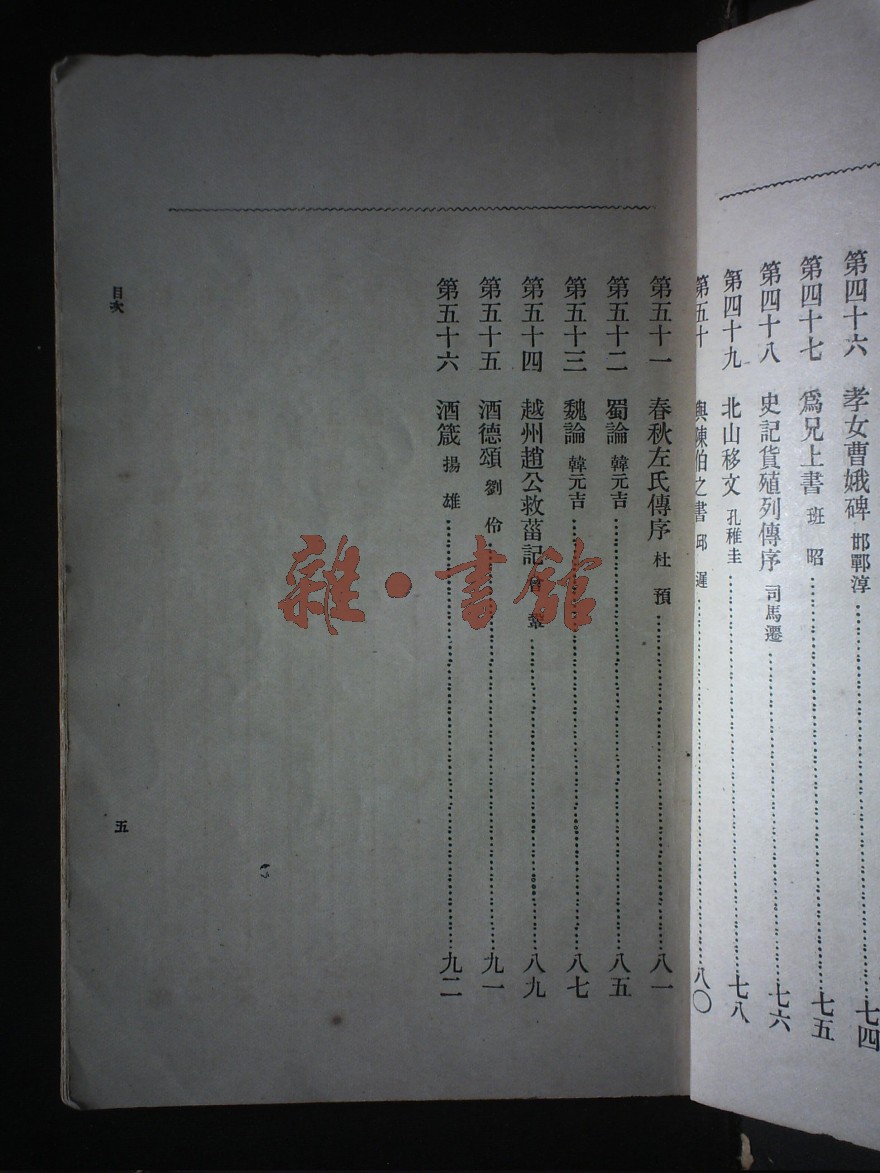 第四十六 孝女曹娥碑 邯鄲淳 七四
第四十七 爲兄上書 班昭 七五
第四十八 史記貨殖列傳序 司馬遷 七六
第四十九 北山移文 孔稚圭 七八
第五十 與陳伯之書 邱遲 八〇
第五十一 春秋左氏傳序 杜預 八一
第五十二 蜀論 韓元吉 八五
第五十三 魏論 韓元吉 八七
第五十四 越州趙公救菑記 曾鞏 八九
第五十五 酒德頌 劉伶 九一
第五十六 酒箴 揚雄 九二
目次
五
雜·書館